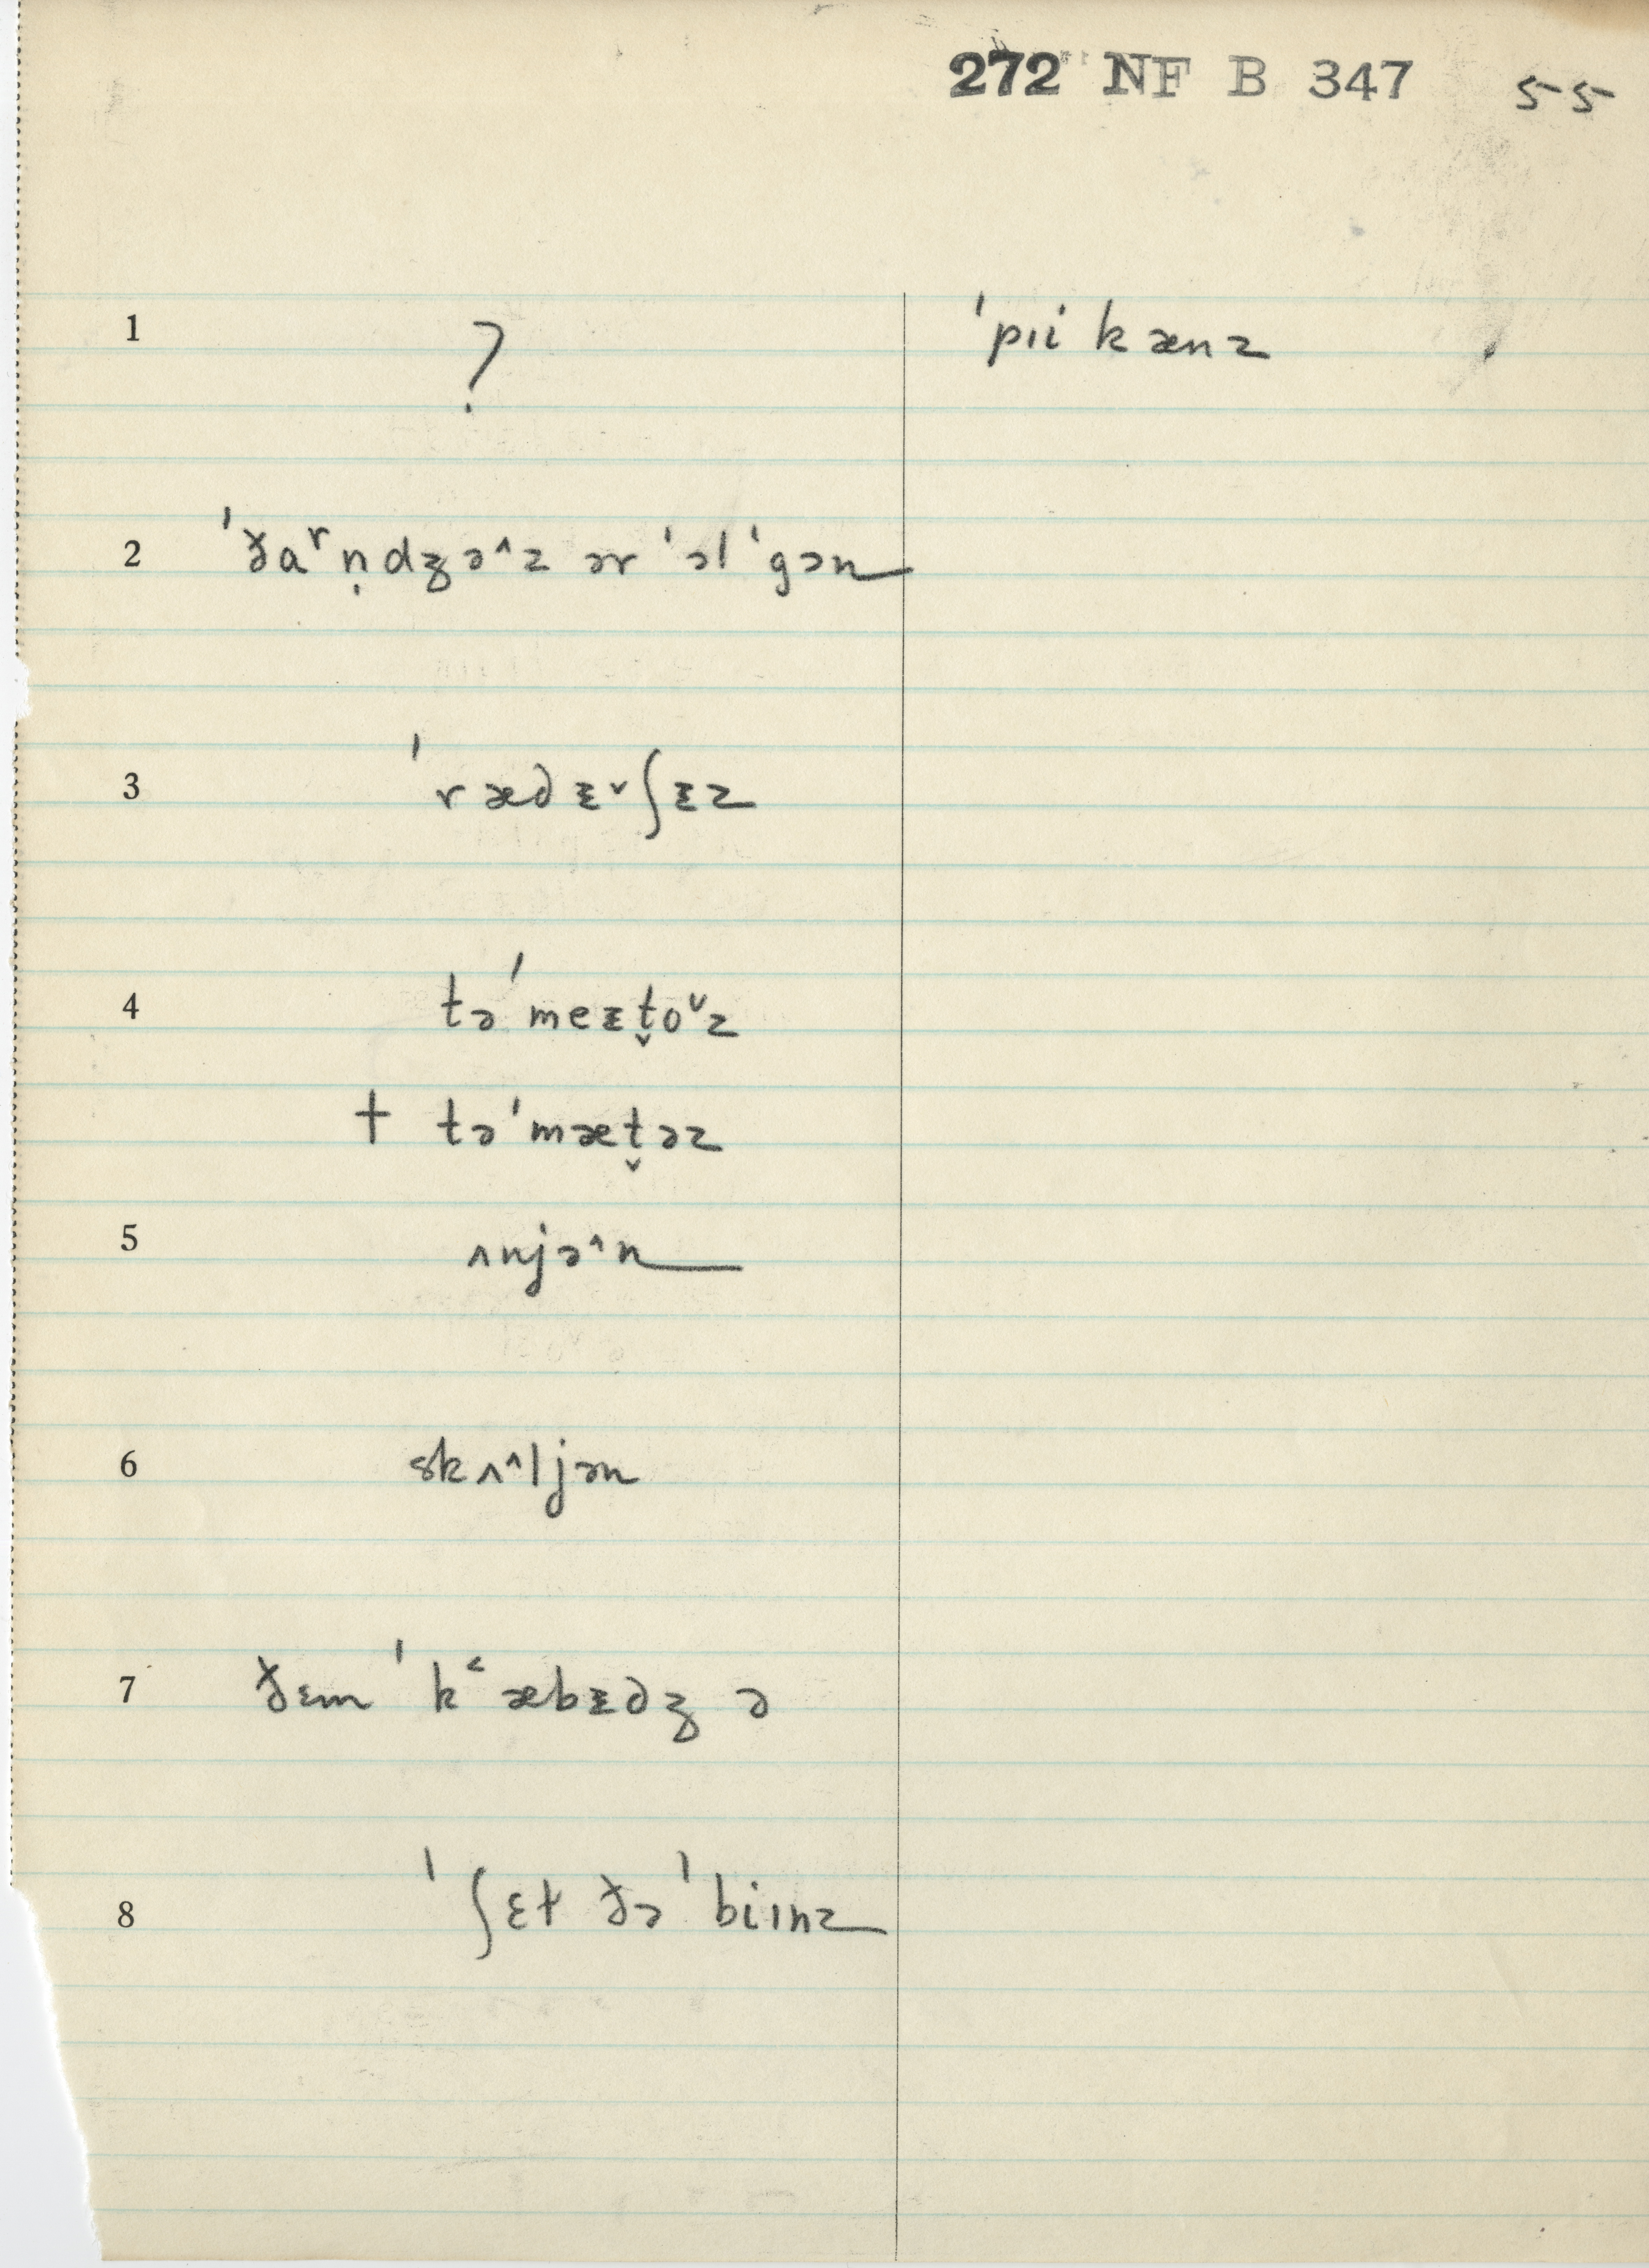 272 NF B 347 55
1 ? ˈpɪi kænz
2 ˈða ʳn̩dʒə˄z ər ˈɔl ˈgɔn
3 ˈrædᵻ˅ʃᵻz
4 təˈmeᵻt̬o˅z
† təˈmæt̬əz
5 ʌnjə˄n
6 skʌ˄ljən
7 ðɛm ˈk˂æbᵻdʒ ə
8 ˈʃɛt ðə ˈbiɪnz